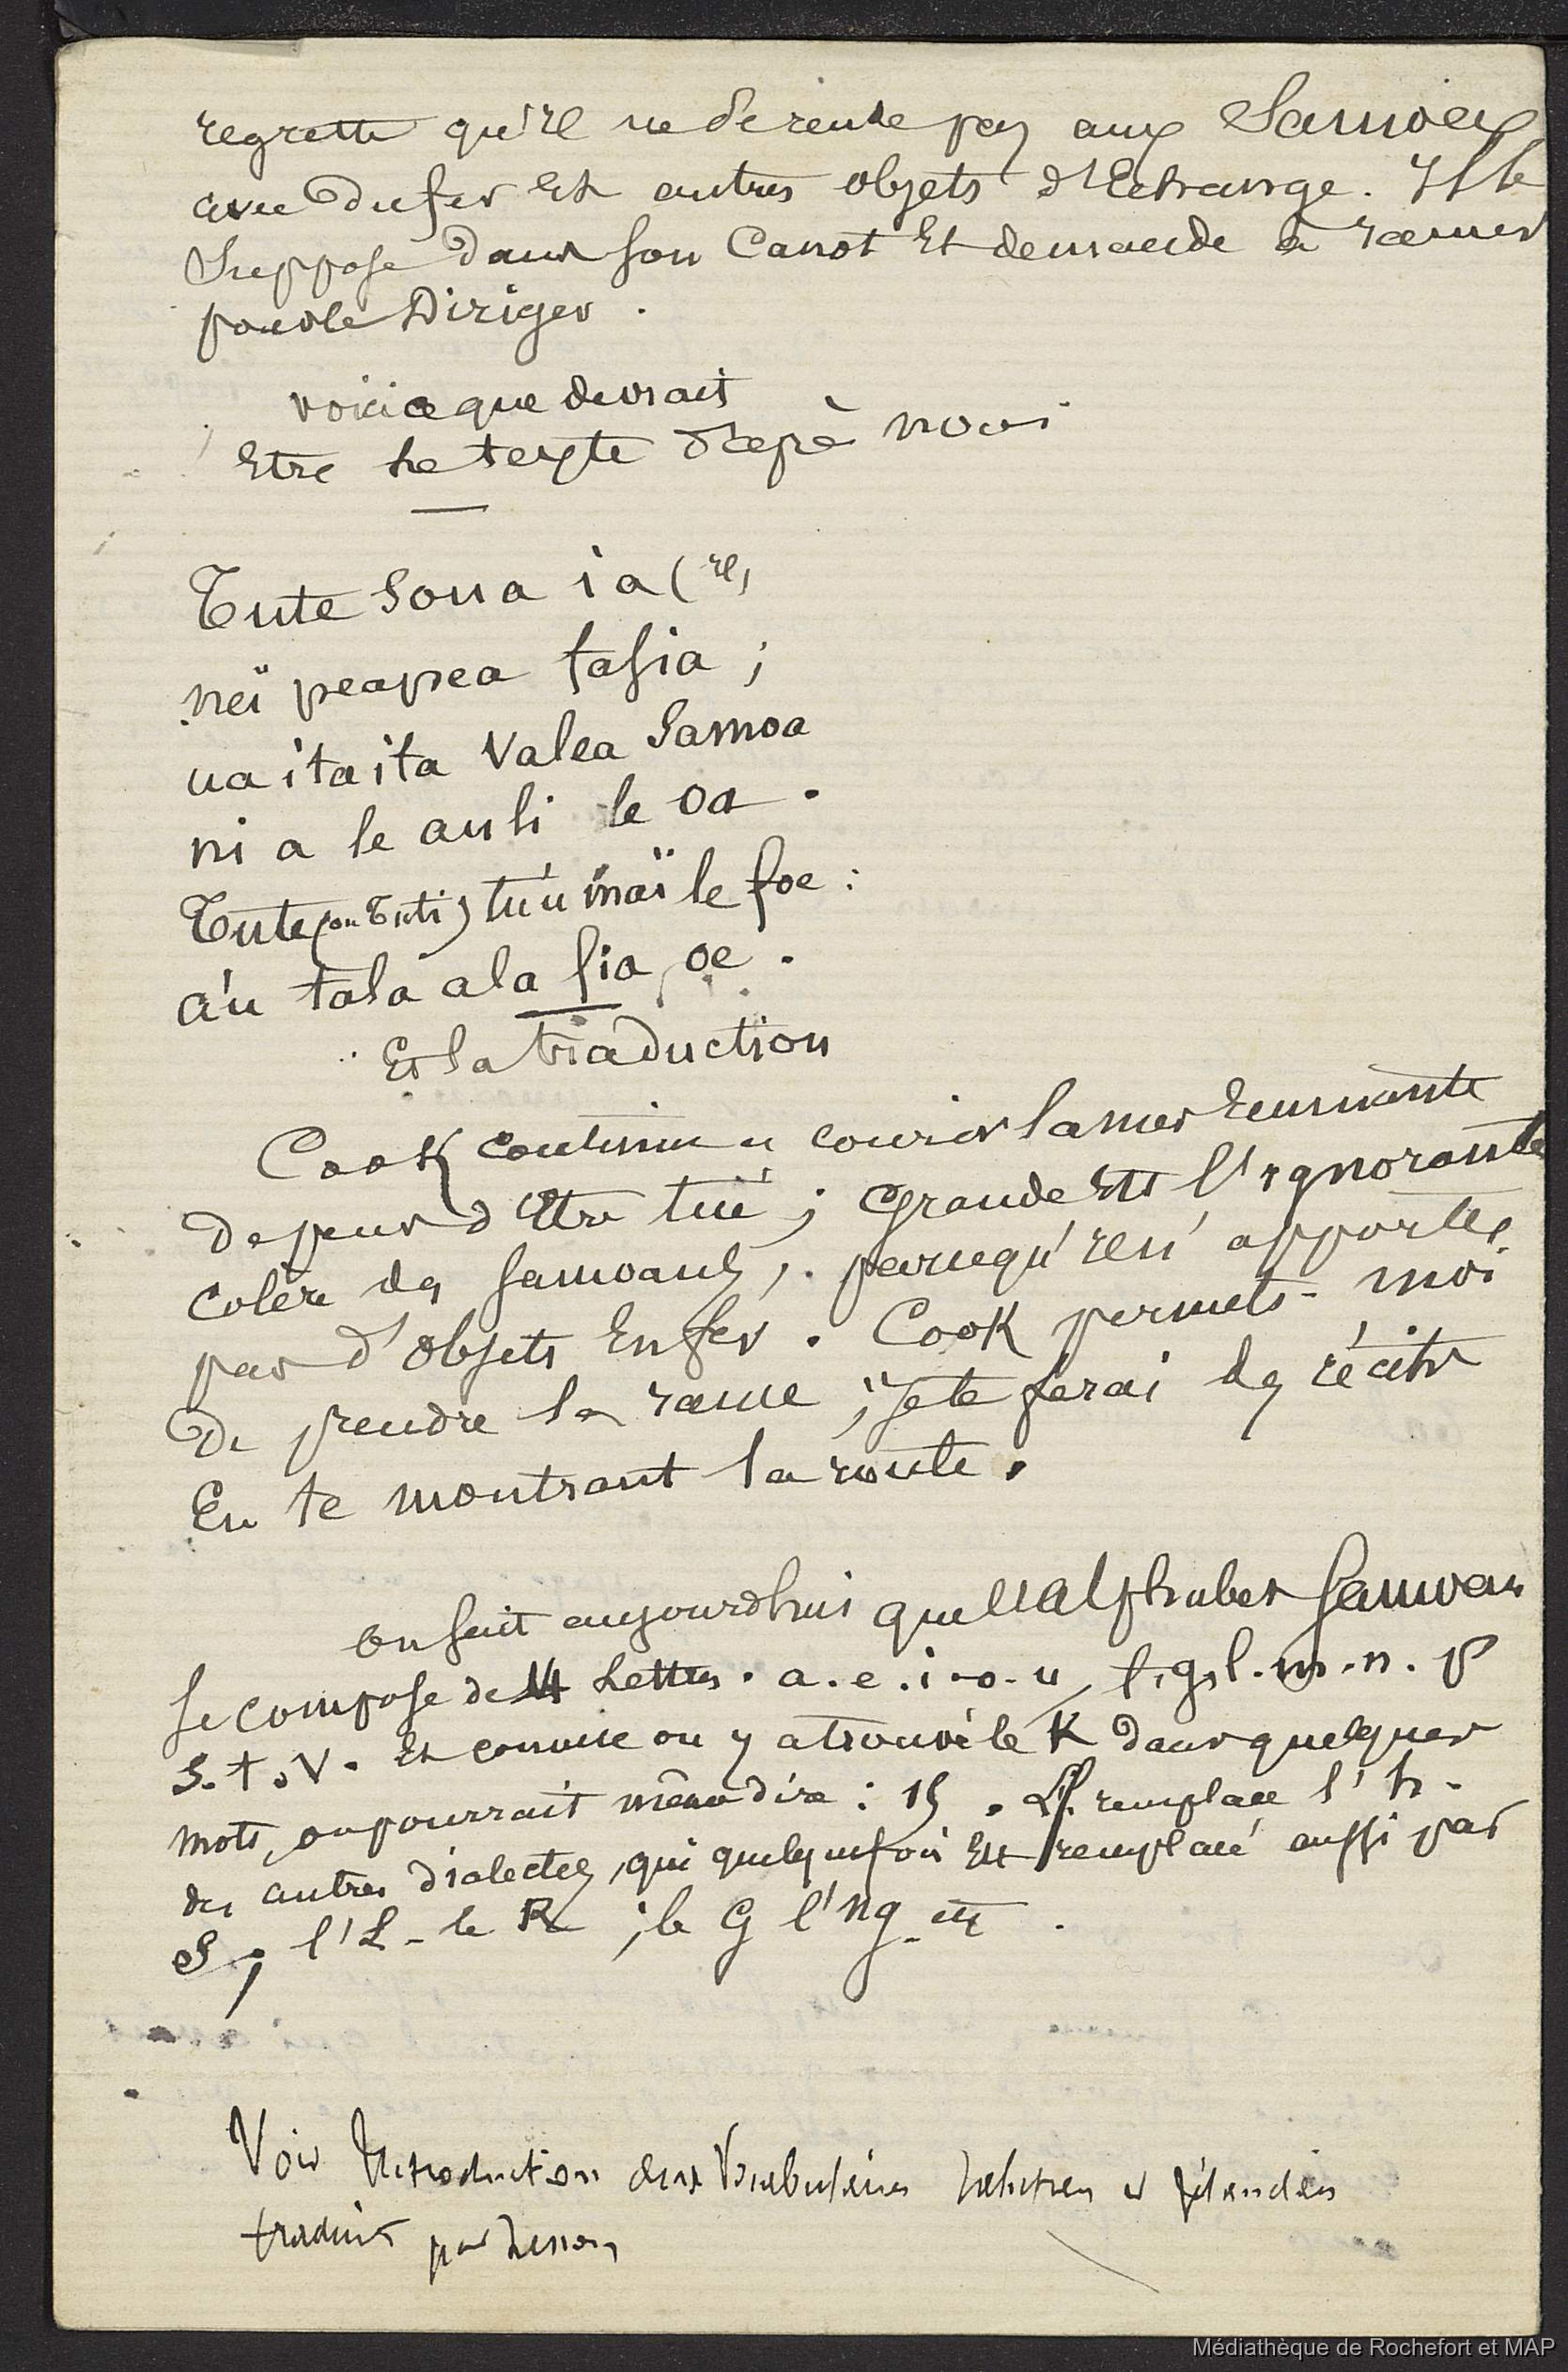 regrette qu'il ne se rende pas aux Samoa
avec du fer et autres objets d'Echange. Il le
Suppose dans son Canot Et demande à ramer
pour le Diriger.
voici ce que devrait
Etre le texte d'apè nous
Tute Soua ia (re,
neï peapea tafia ;
ua ita ita Valea Samoa
ni a le auli le oa.
Tute (ou Tuti) tu'u maï le foe :
a'u tala ala fia oe.
Et la traduction
Cook continue a courir la mer Ecumante
de peur d'Etre tué ; Grande Est l'ignorante
colère des samoans, parcequ'il n'apporte
pas d'objets En fer. Cook permets-moi
De prendre la rame ; Je te ferai des récits
En te montrant la route.
on sait aujourdhui que l'alphabet samoan
se compose de 14 Lettres. a. e. i. o. u, f. g. l. m. n. p
S. t. V. Et comme on y a trouvé le K dans quelques
mots, on pourrait même dire : 15. L'f. remplace l'h.
des autres dialectes, qui quelquefois Est remplacé aussi par
S ; l'L - le R ; le G l'ng. etc.
Voir Introduction aux Vocabulaires
traduits par Lesson
Médiathèque de Rochefort et MAP